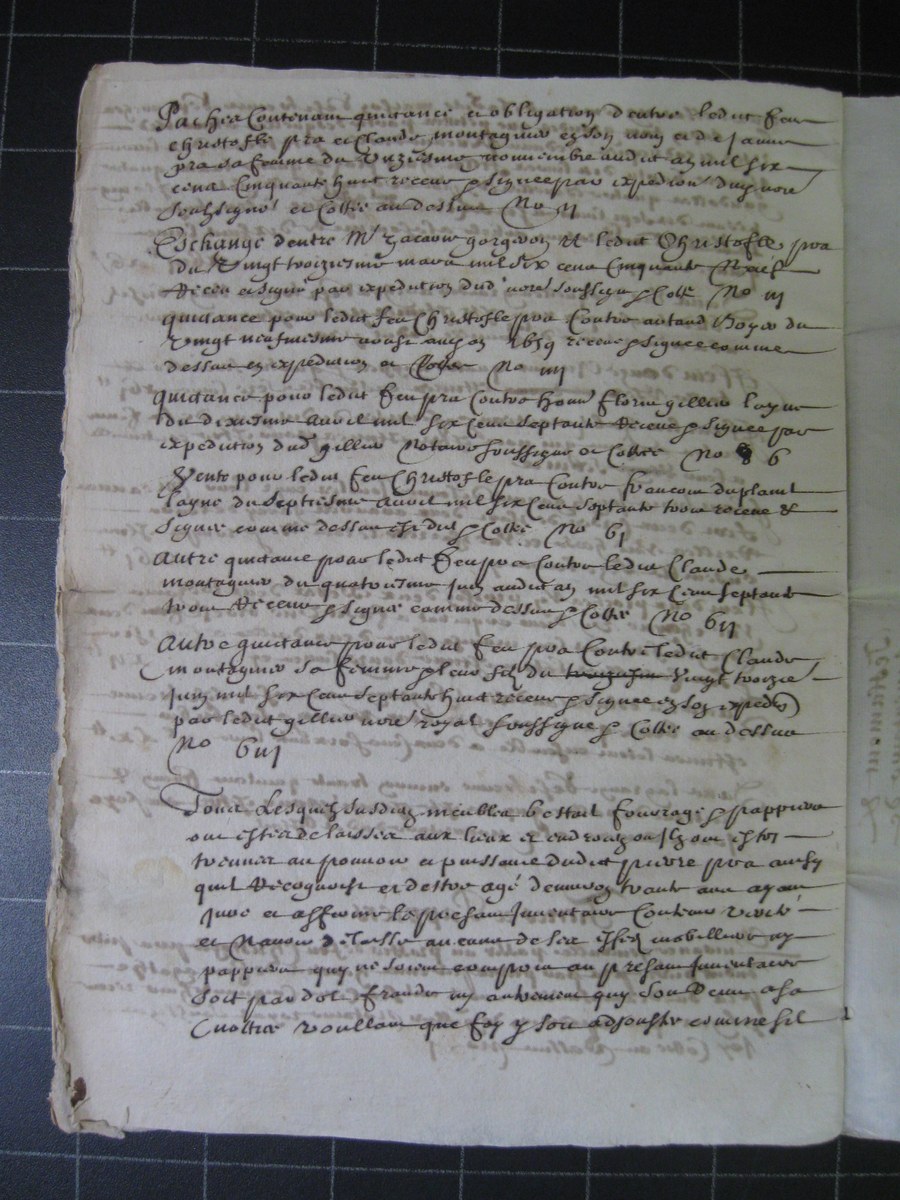 Paches Contenant quictance et obligation d'entre ledict feu
christofle pra et Claude montagnier en son nom et de Jeanne
pra sa femme du Unziesme novembre audict an mil six
cent Cinquante huit receue & signee par expedition dud nore
soubsigné et Cottée au dessus No II
Eschange d'entre Mr gorgeron et ledict Christofle pra
du Vingt troiziesme mars mil six cent Cinquante Neuf
Receu et signé par expedition dud nore soussigne & Cotté No III
quictance pour ledict feu Christofle pra Contre Boyer du
Vingt neufiesme aoust an 1659 receue & signee comme
dessus en expedition et Cottée No IIII
quictance pour ledict feu pra Contre hone florin gillier
du dixiesme avril mil six Cent septante Receue & signee par
expedition dud gillier Notaire soussigne et Cottée No 6
Vente pour ledict feu Christofle pra Contre francois duplaul
layne du septiesme avril mil six Cent septante trois receue &
signee comme dessus est dict & Cottée No 6I
Autre quictance pour ledict feu pra Contre ledict Claude
montagnier du quatriesme Juin audict an mil six Cent septante
trois Receue & signee comme dessus & Cottée No 6II
Autre quictance pour ledict feu pra Contre ledict Claude
montagnier sa femme & leur filz du Vingt troizie
Juin mil six Cent septante huit receue & signee en son expedon
par ledict gillier nore royal soussigne & Cottée au dessus
No 6III
Tous Lesquelz susdictz meubles bestail fourrage & pappiers
ont esté delaissez aux lieux et endroictz ou Ilz ont estez
treuvez au pouvoir et puissance dudict pierre pra ainsy
quil Recognoist et d'estre agé d'environ trente ans ayant
Juré et affermé le present Inventaire Contenir verité
et N'avoir delaissé aucune desd mobilliers ny
pappiers quy ne soient comprins au present Inventaire
soit par dol fraude ny aultrement quy soit venu a sa
Cognoissance voullant que foy y soit adjoustée comme sil